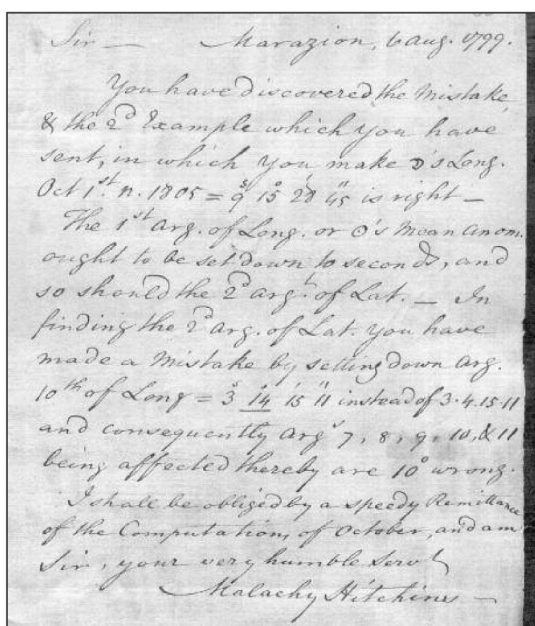 Sir — Marazion, 6 Aug. 1799.
You have discovered the Mistake,
& the 2d Example which you have
sent, in which you make ☽'s Long.
Oct 1st. n. 1805 = 9s 15° 28' 45" is right —
The 1st Arg. of Long. or ☉'s Mean Anom.
ought to be set down to seconds, and
so should the 2d Argt. of Lat. — In
finding the 2d Arg. of Lat. you have
made a Mistake by setting down Arg.
10th of Long = 3s 14° 15' 11" instead of 3.4.15.11
and consequently Args 7, 8, 9, 10, & 11
being affected thereby are 10° wrong.
I shall be obliged by a speedy Remittance
of the Computations of October, and am
Sir, your very humble Servt
Malachy Hitchins —